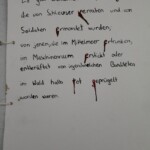 die von Schleuser verraten und von
Soldaten ermordet wurden,
von jenen, die im Mittelmeer ertrunken,
im Maschinenraum erstickt oder
entkräftet von irgendwelchen Banditen
im Wald halb tot geprügelt
worden waren.